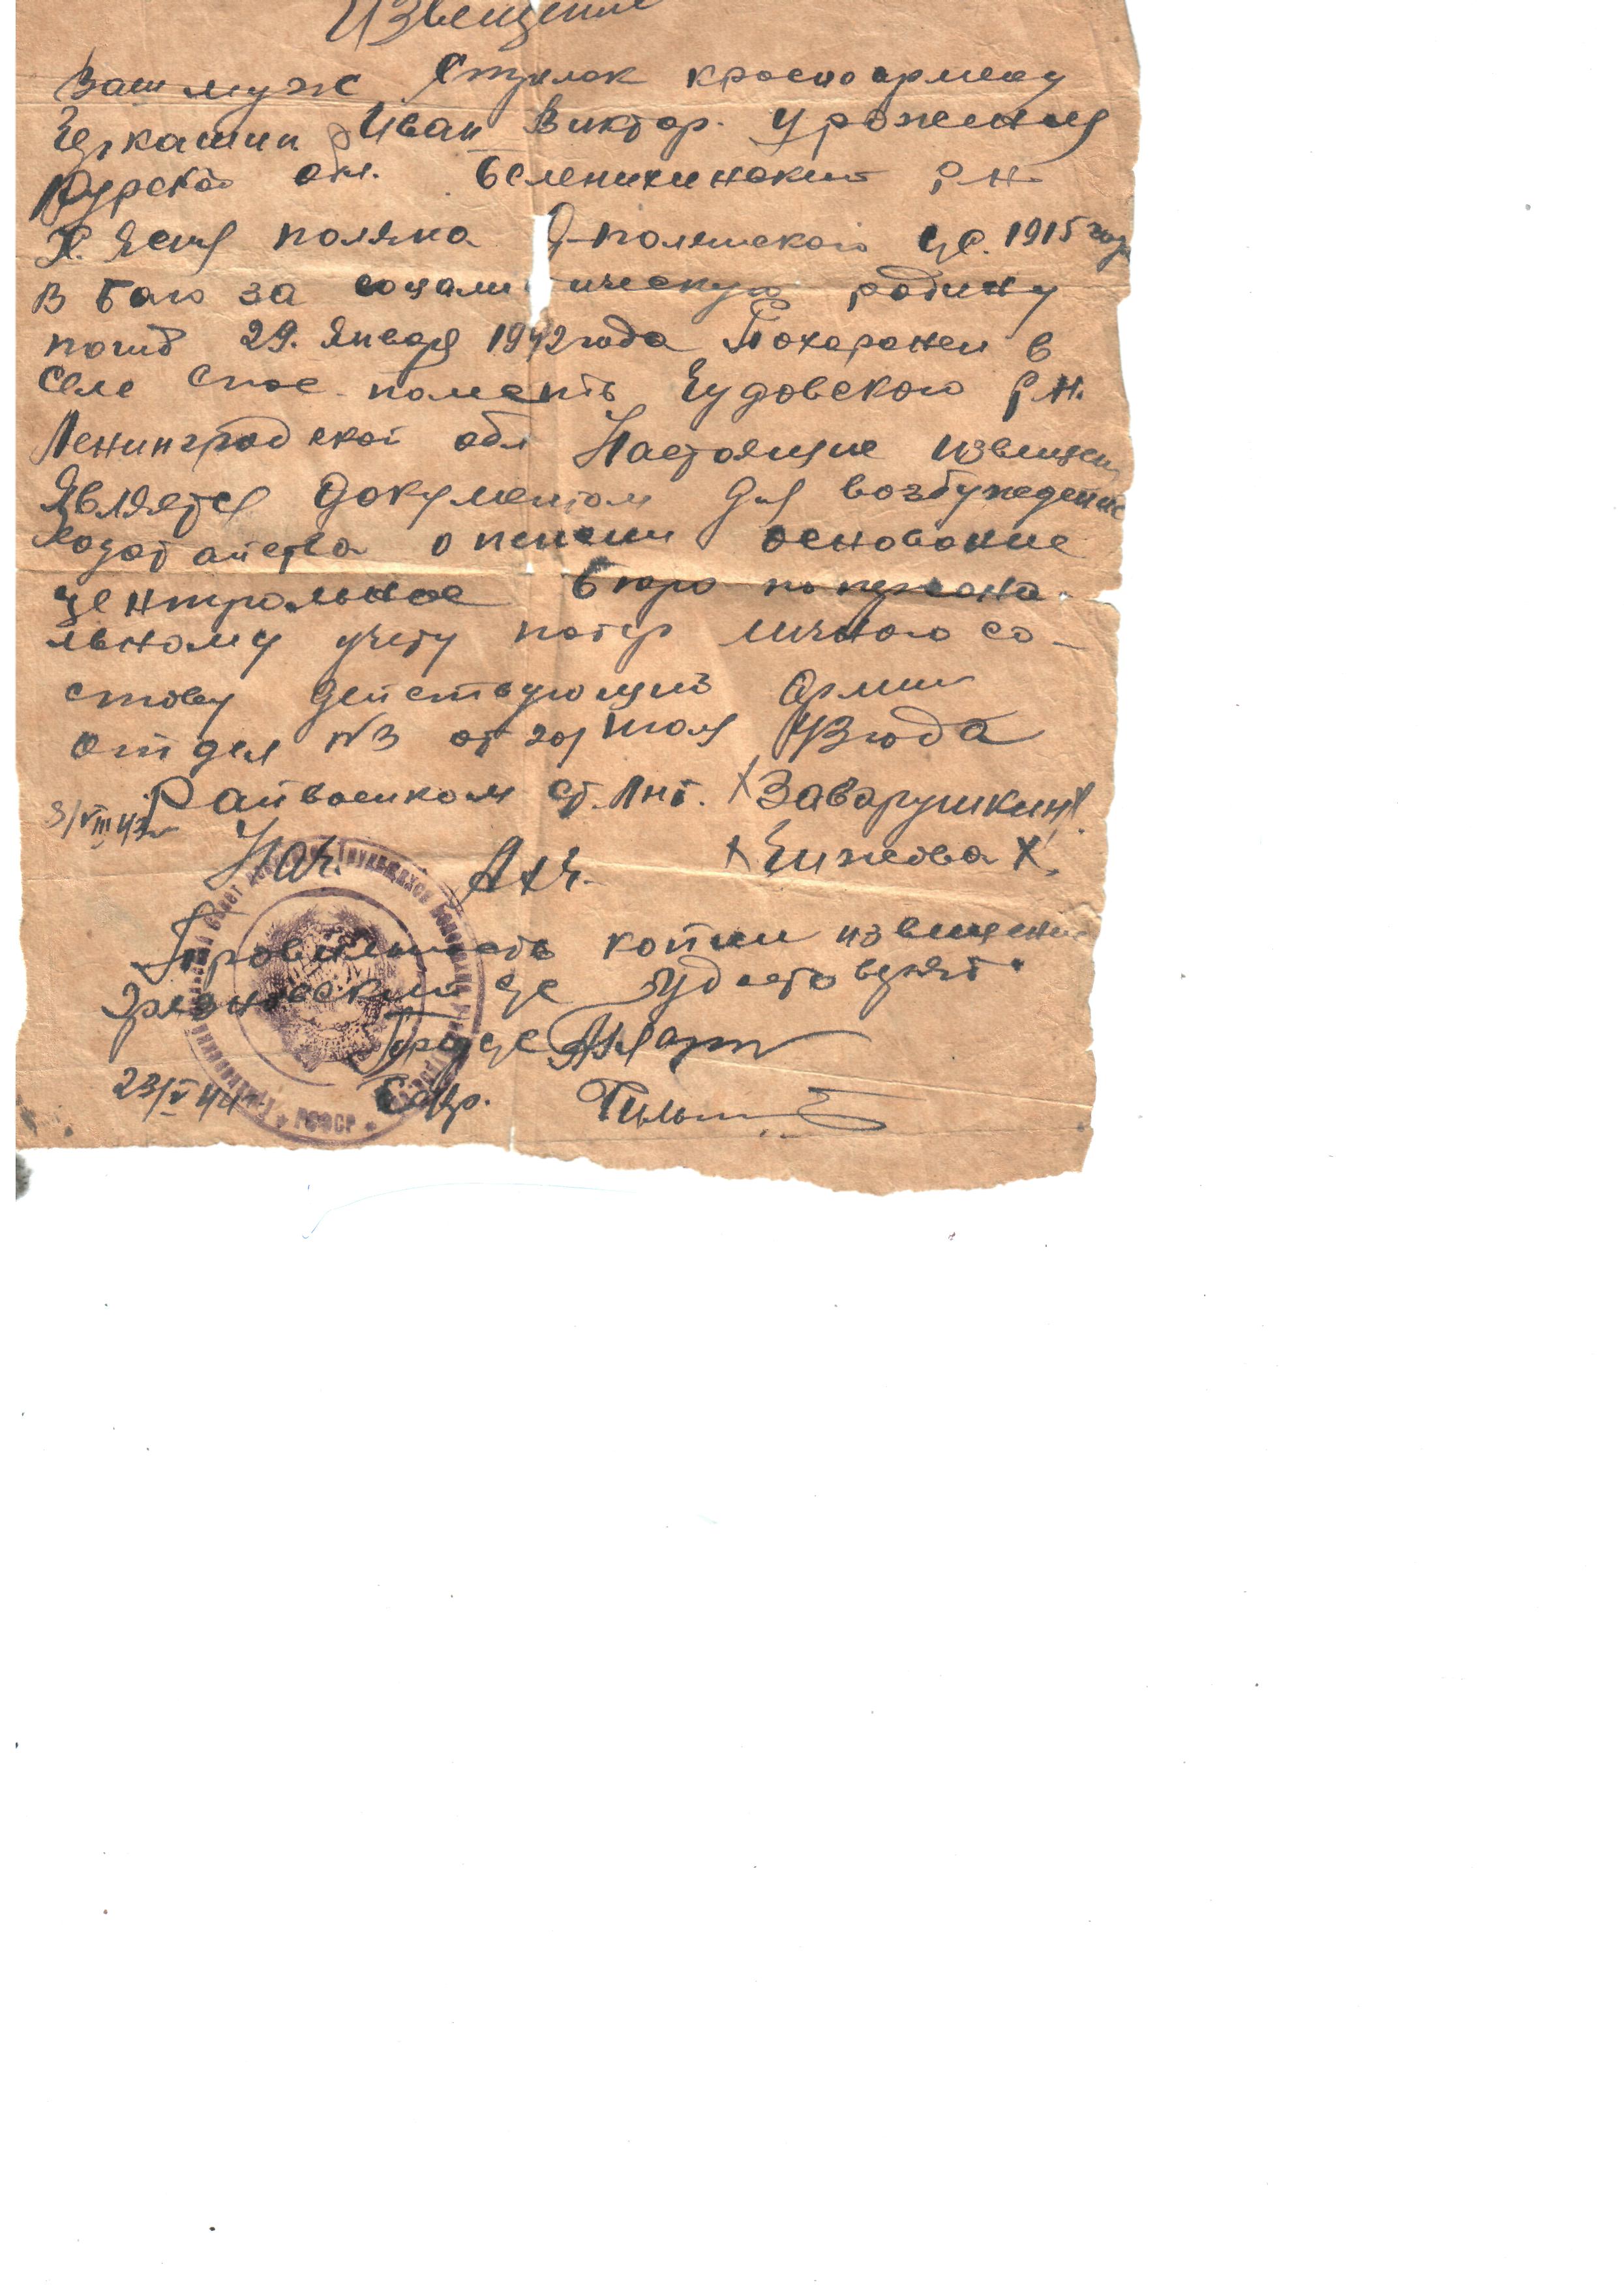 Извещение
Ваш муж Стрелок красноармеец
Черкашин Иван Виктор. Уроженец
Курской обл. Беленихинский р.н
Х. Ясная поляна Я-полянского с/с. 1915 года
В бою за социали ическую родину
погиб 29. Января 1942 года Похоронен в
Селе Спас-полисть Чудовского р.н.
Ленинградской обл Настоящие извещен
Является документом для возбуждение
Ходотайства о пенсии основание
центральное бюро по персона-
льному учету потер личного со-
става действующий Армии
отдел №3 от 20/ Июля 43 года
Райвоенком ст. лнт. х Заварушкин х.
3/VIII 43 г
Нач. х х.
копии извещени
с/с удостоверяет.
Пред с/с
23/V 44 г. Секр.
РСФСР